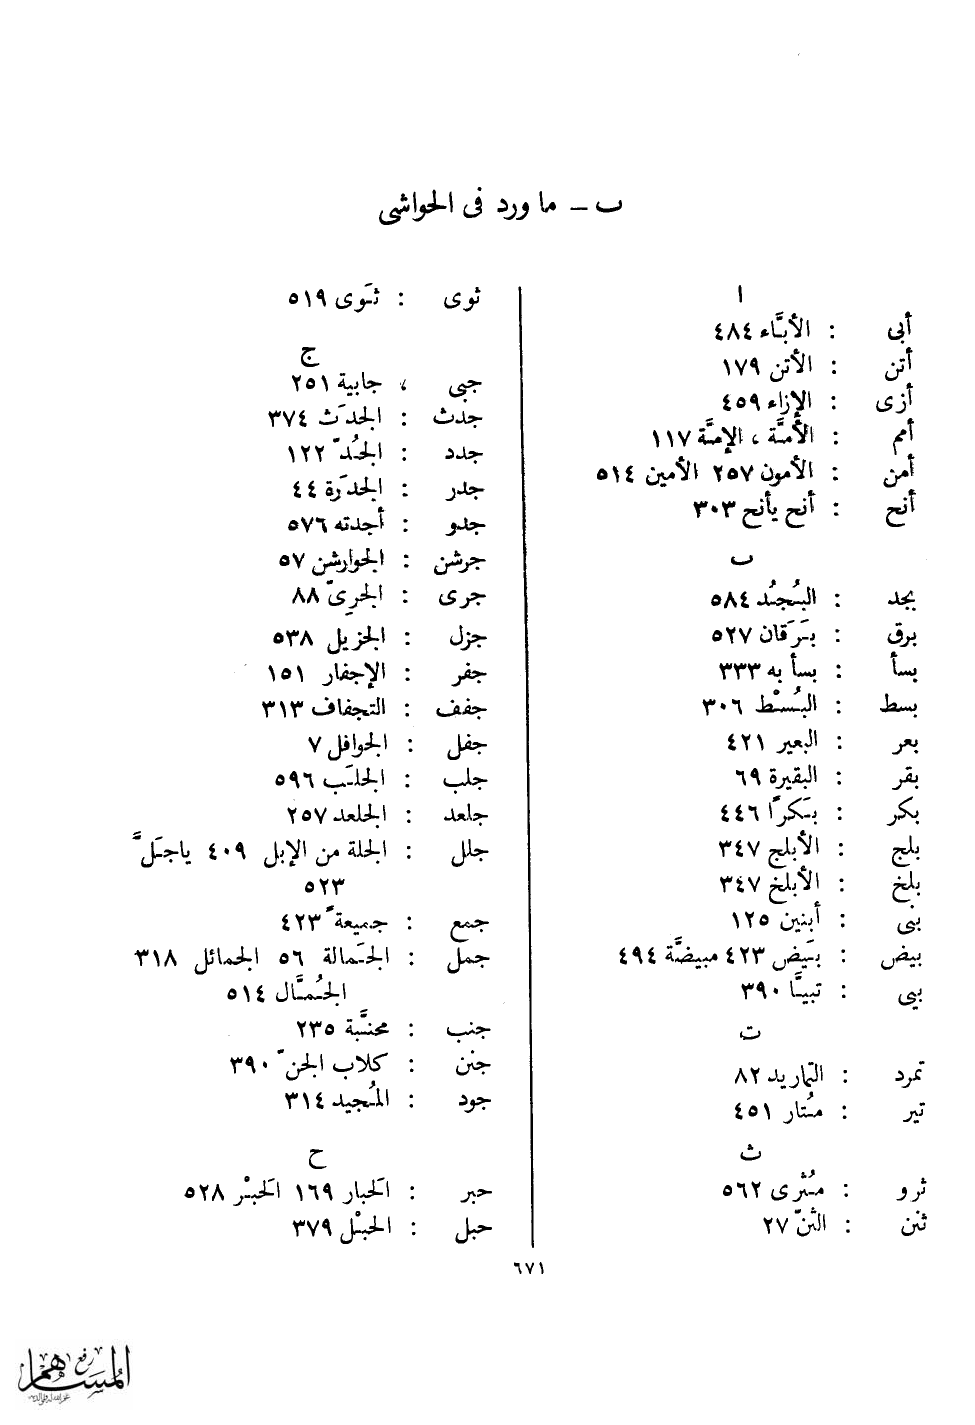 ب – ما ورد فى الحواشى
ا
أبى : الأبَّاء ٤٨٤
أتن : الأتن ١٧٩
أزى : الإزاء ٤٥٩
أمم : الأمَّة ، الإمَّة ١١٧
أمن : الأمون ٢٥٧ الأمين ٥١٤
أنح : أنح يأنح ٣٠٣
ب
بجد : البُجُد ٥٨٤
برق : بَرَقان ٥٢٧
بسأ : بسأ به ٣٣٣
بسط : البُسْط ٣٠٦
بعر : البعير ٤٢١
بقر : البقيرة ٦٩
بكر : بَكرًا ٤٤٦
بلج : الأبلج ٣٤٧
بلخ : الأبلخ ٣٤٧
بنى : أبنين ١٢٥
بيض : بَيَض ٤٢٣ مبيضَّة ٤٩٤
بيى : تبيَّا ٣٩٠
ت
تمرد : التماريد ٨٢
تير : مُتار ٤٥١
ث
ثرو : مُثرى ٥٦٢
ثنن : الثنّ ٢٧
ثوى : ثَوى ٥١٩
ج
جبى ، جابية ٢٥١
جدث : الجدَث ٣٧٤
جدد : الجُدّ ١٢٢
جدر : الجدَرة ٤٤
جدو : أجدته ٥٧٦
جرشن : الجوارشن ٥٧
جرى : الجرِىّ ٨٨
جزل : الجزيل ٥٣٨
جفر : الإجفار ١٥١
جفف : التجفاف ٣١٣
جفل : الجوافل ٧
جلب : الجلَب ٥٩٦
جلعد : الجلعد ٢٥٧
جلل : الجلة من الإبل ٤٠٩ ياجَلَّ
٥٢٣
جمع : جميعةً ٤٢٣
جمل : الجَمالة ٥٦ الجمائل ٣١٨
الجُمَّال ٥١٤
جنب : مجنَّبة ٢٣٥
جنن : كلاب الجنّ ٣٩٠
جود : المُجيد ٣١٤
ح
حبر : الحَبار ١٦٩ الحَبْر ٥٢٨
حبل : الحبْل ٣٧٩
٦٧١
المساهم